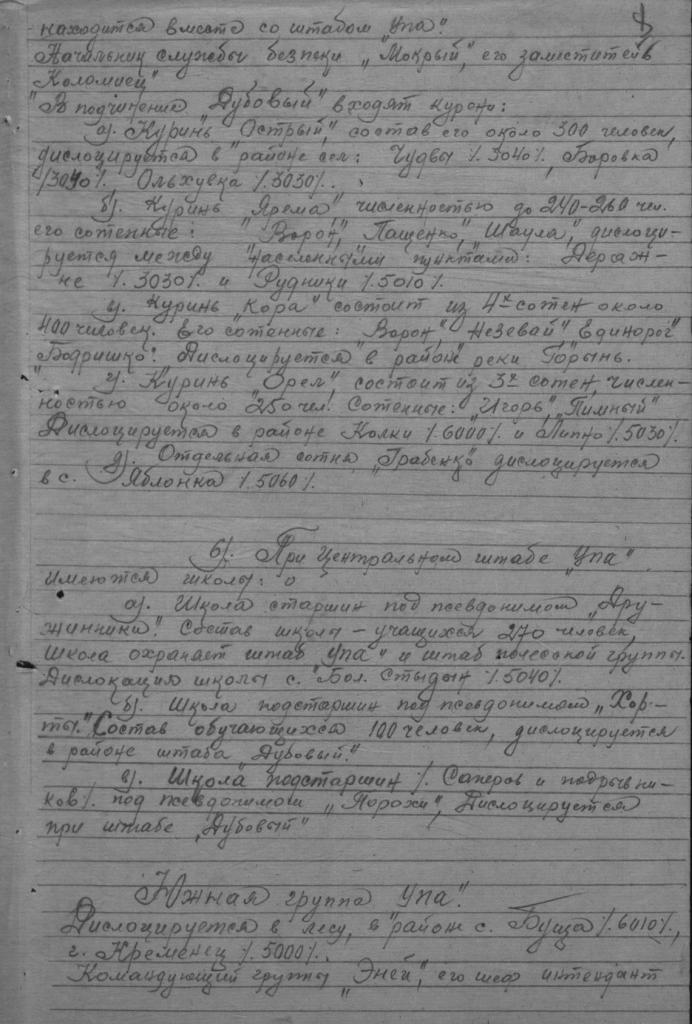 находится вместе со штабом „УПА".
Начальник службы безпеки „Мокрый", его заместитель
Коломиец"
"В подчинение Дубовый" входят курени:
а). Куринь „Острый", состав его около 300 человек,
дислоцируется в районе сел: Чудвы %3040%, Боровка
%3040% Ольхувка %3030%.
б). Куринь „Ярема" численностью до 240-260 чел.
его сотенные: „Ворон", Пащенко", Шаула", дислоци-
руется между населенными пунктами: Держ-
не %3030% и Рудники %5010%.
в). Куринь „Кора" состоит из 4х сотен около
400 человек. Его сотенные: Ворон", Незевай" Единорог"
Бодришко". Дислоцируется в район реки Горынь.
г). Куринь „Орел" состоит из 3х сотен, числен-
ностью около 250 чел. Сотенные: „Игорь", „Пимный"
Дислоцируется в районе Колки %6000% и Липно %5030%.
д). Отдельная сотня „Грабенко" дислоцируется
в с. Яблонка %5060%.
6). При Центральном штабе „УПА"
имеются школы:
а). Школа старшин под псевдонимом „Дру-
жинники". Состав школы – учащихся 270 человек,
школа охраняет штаб УПА" и штаб полесской группы.
Дислокация школы с. Бол. Стыдын %5040%.
б). Школа подстаршин под псевдонимом „Хор-
ты". Состав обучающихся 100 человек, дислоцируется
в районе штаба „Дубовый".
в). Школа подстаршин % Саперов и подрывни-
ков % под псевдонимом „Порохи", Дислоцируется
при штабе „Дубовый"
Южная группа УПА".
Дислоцируется в лесу, в район с. Буща %6010%,
г. Кременец %5000%.
Командующий группы „Эней", его шеф интендант